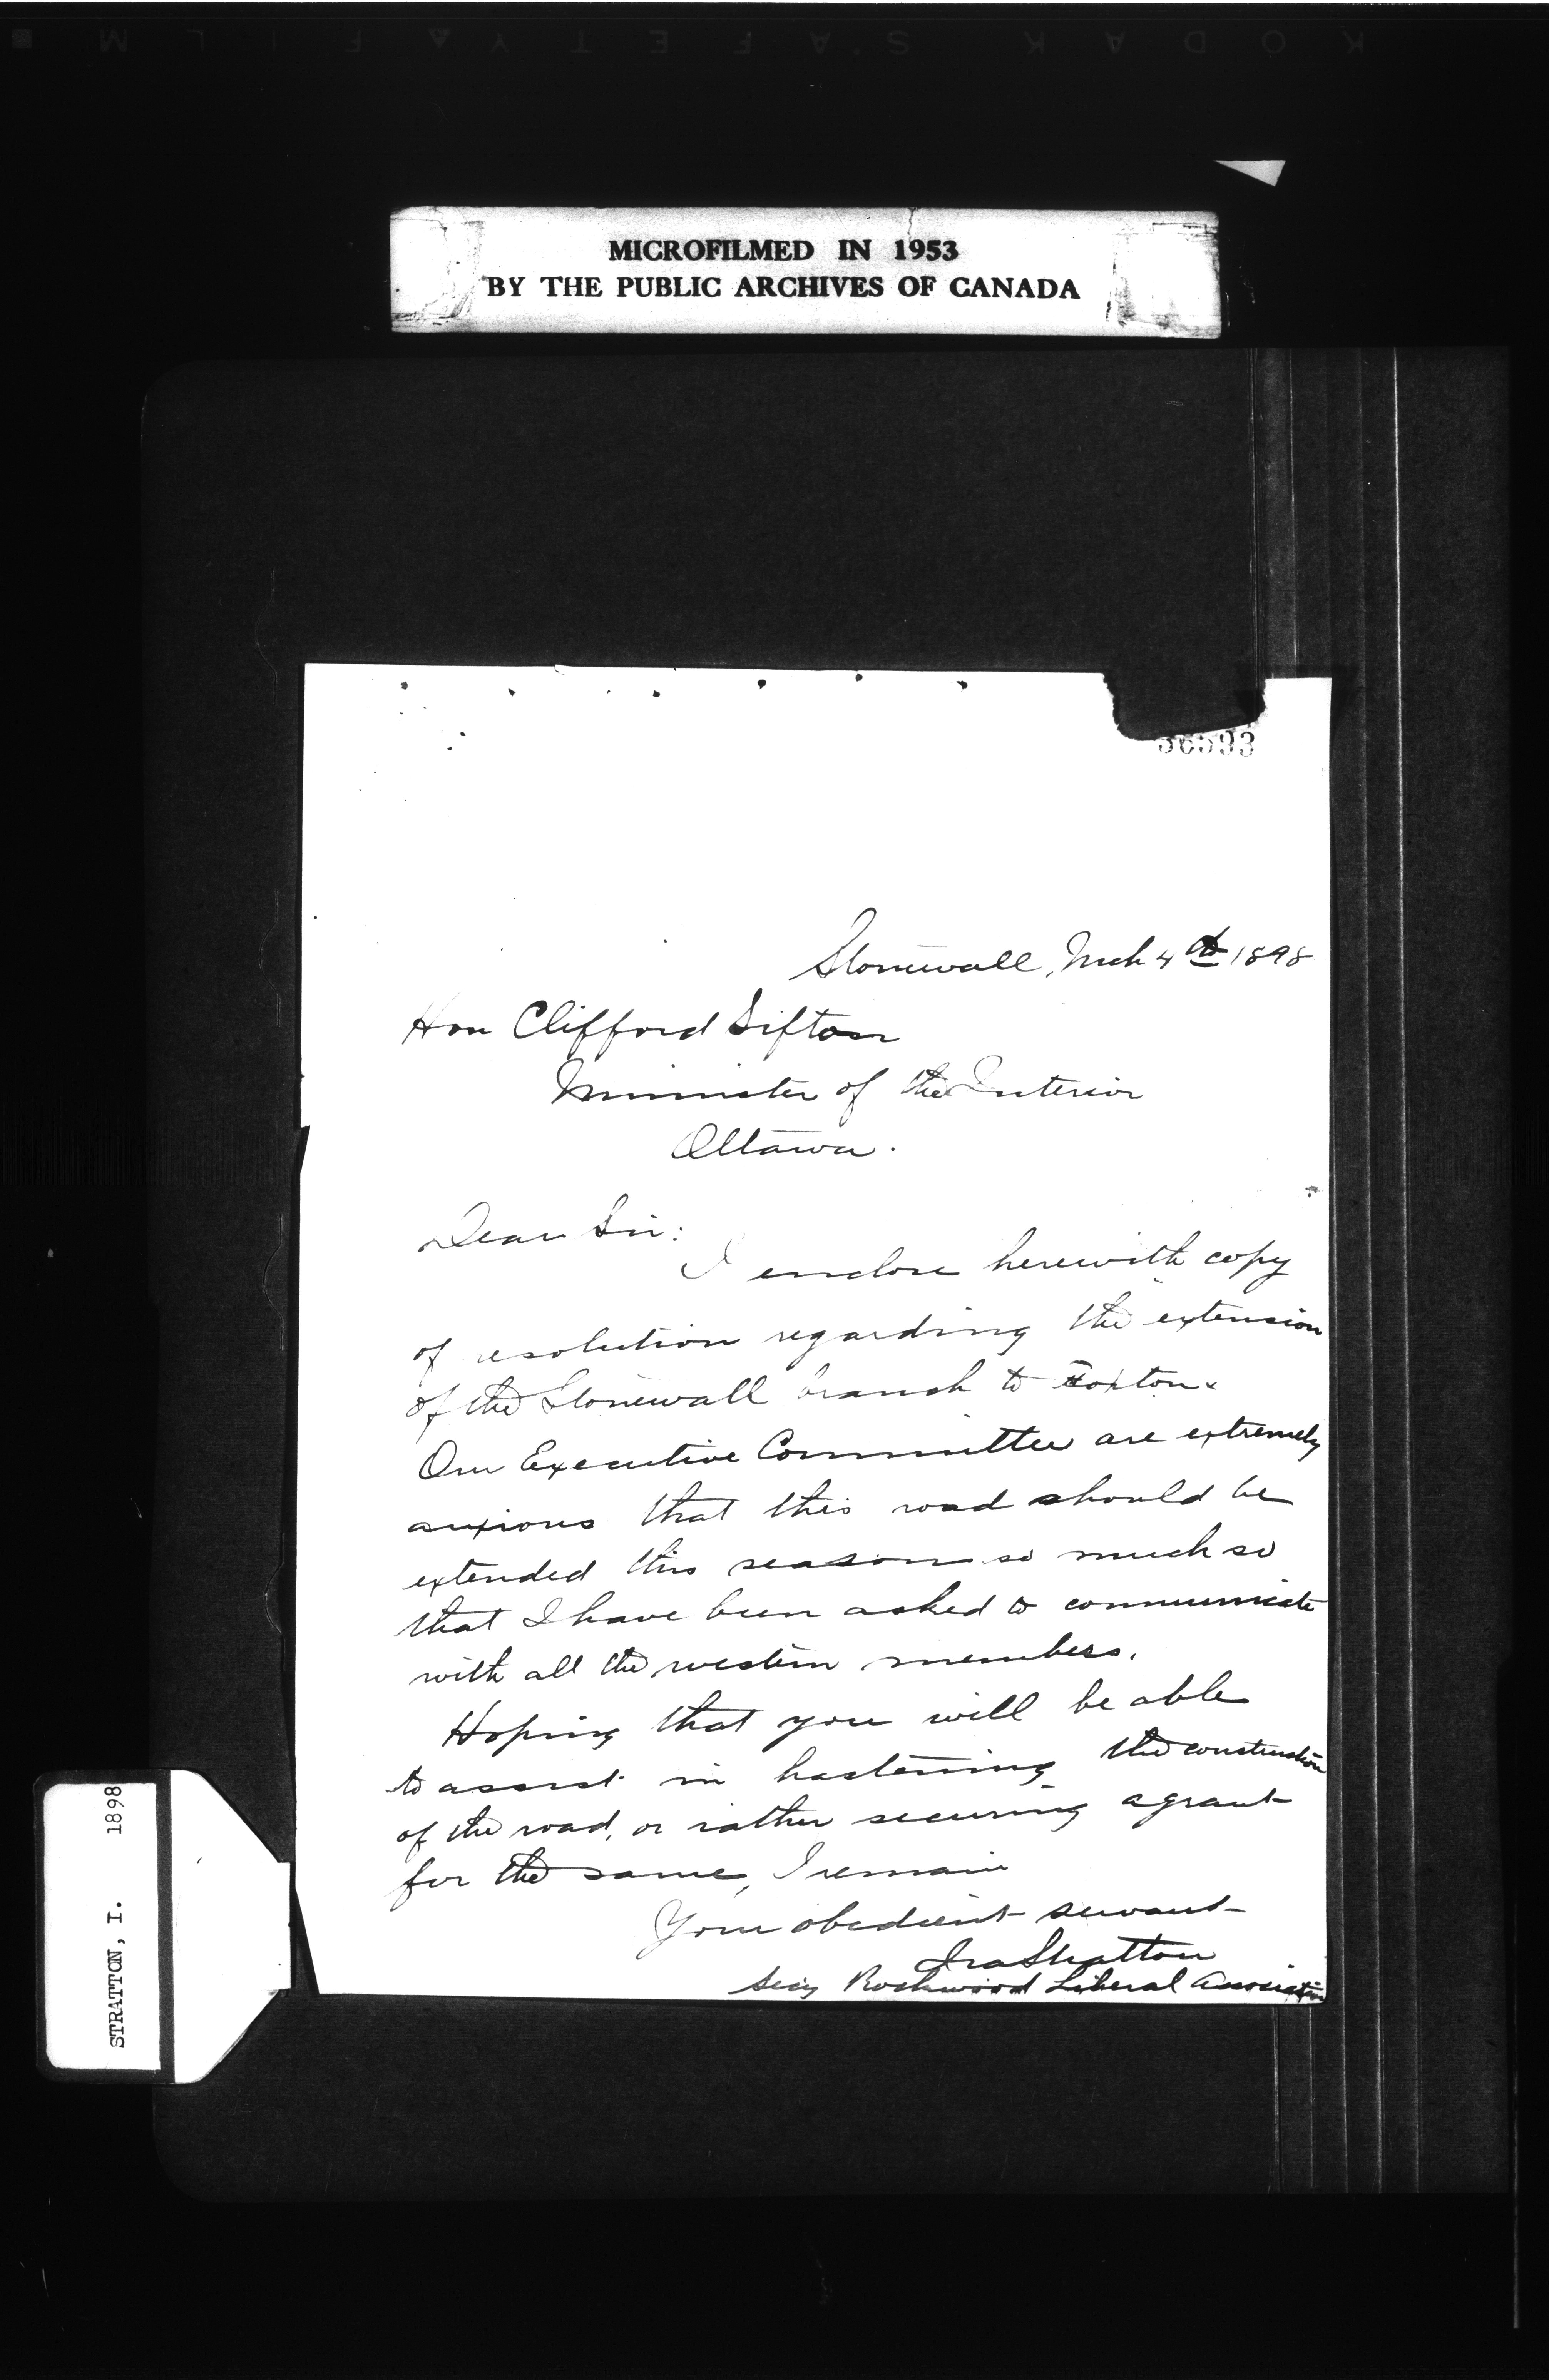 KODAK SAFETY FILM
MICROFILMED IN 1953
BY THE PUBLIC ARCHIVES OF CANADA
36593
Stonewall, Mch 4th 1898
Hon Clifford Sifton
Minister of the Interior
Ottawa.
Dear Sir:
I enclose herewith copy
of resolution regarding the extension
of the Stonewall branch to Foxton.
Our Executive Committee are extremely
anxious that this road should be
extended this season so much so
that I have been asked to communicate
with all the western members.
Hoping that you will be able
to assist in hastening the construction
of the road, or rather securing a grant
for the same, I remain
Your obedient servant
Ira Stratton
Secy Rockwood Liberal Association
STRATTON, I. 1898